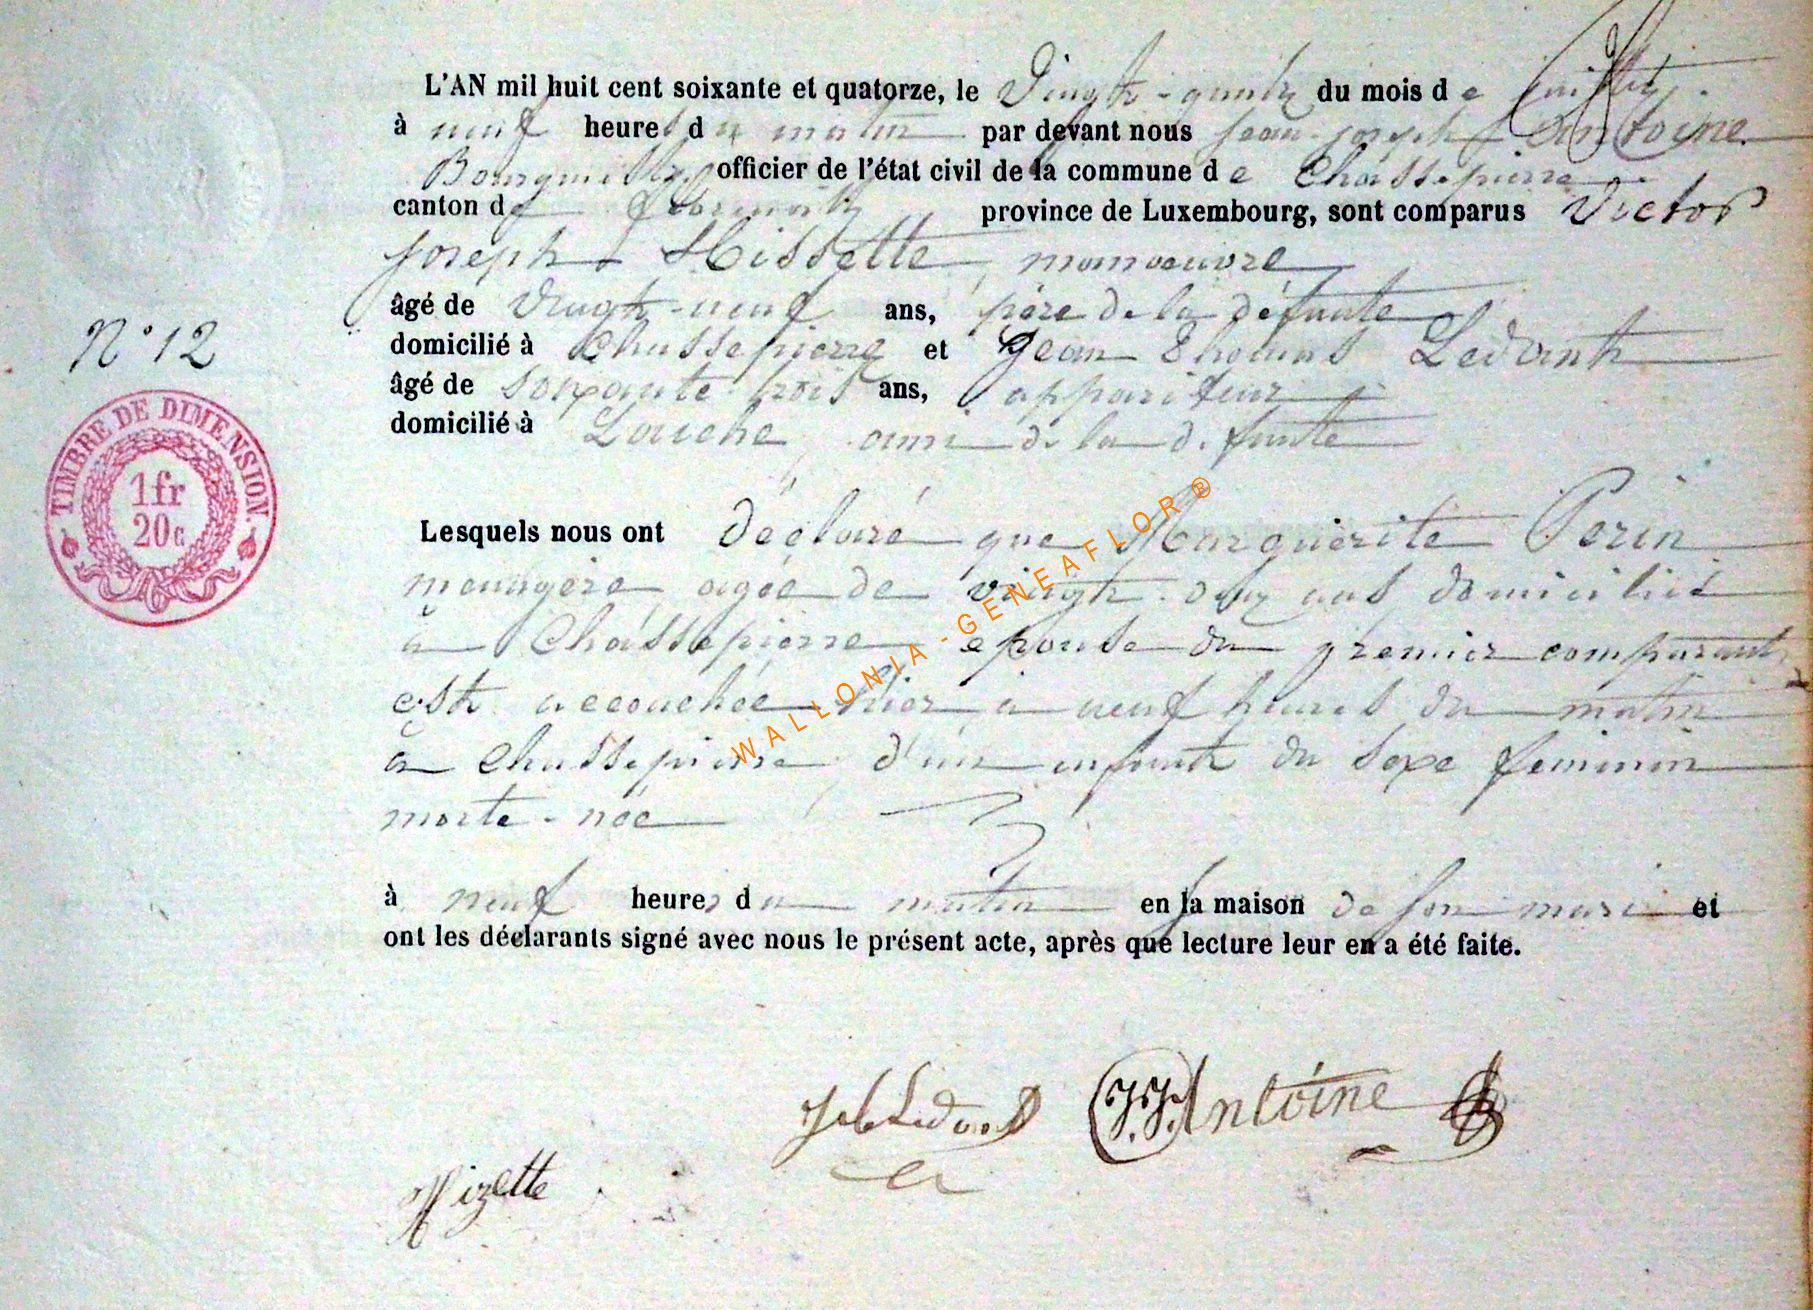 L'AN mil huit cent soixante et quatorze, le Vingt-quatre du mois de juillet
à neuf heures du matin par devant nous Jean-joseph Antoine
Bourgmestre officier de l'état civil de la commune de Chassepierre
canton de Florenville province de Luxembourg, sont comparus Victor
joseph Hissette, manoeuvre
âgé de vingt-neuf ans, père de la défunte
domicilié à Chassepierre et Jean Thomas Ledant
N° 12
âgé de soixante trois ans, appariteur
domicilié à Laiche, ami de la défunte
TIMBRE DE DIMENSION.
1fr
20c
Lesquels nous ont déclaré que Marguerite Perin
menagère, agée de vingt- ans domiciliée
à Chassepierre epouse du premier comparant,
est accouchée hier à neuf heures du matin
à Chassepierre, d'un enfant du sexe feminin
morte-née
à neuf heures du matin en sa maison de son mari et
ont les déclarants signé avec nous le présent acte, après que lecture leur en a été faite.
WALLONIA - GENEAFLOR ®
Ledant J.J. Antoine
Hizette